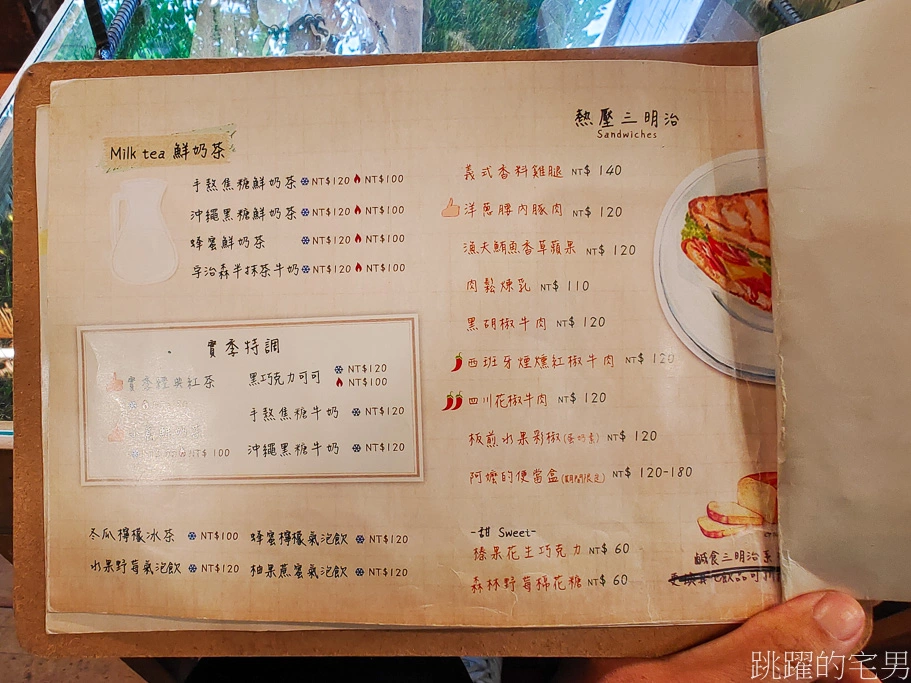 Milk tea 鮮奶茶
手熬焦糖鮮奶茶 NT$120 NT$100
沖繩黑糖鮮奶茶 NT$120 NT$100
蜂蜜鮮奶茶 NT$120 NT$100
宇治森半抹茶牛奶 NT$120 NT$100
實季特調
實季經典紅茶
黑巧克力可可 NT$120
NT$100
手熬焦糖牛奶 NT$120
NT$ 100
沖繩黑糖牛奶 NT$120
冬瓜檸檬冰茶 NT$100
蜂蜜檸檬氣泡飲 NT$120
水果野莓氣泡飲 NT$120
柚果蔗蜜氣泡飲 NT$120
熱壓三明治
Sandwiches
義式香料雞腿 NT$ 140
洋蔥腰內豚肉 NT$ 120
漁夫鮪魚香草蘋果 NT$ 120
肉鬆煉乳 NT$ 110
黑胡椒牛肉 NT$ 120
西班牙煙燻紅椒牛肉 NT$ 120
四川花椒牛肉 NT$ 120
板煎水果彩椒(蛋奶素) NT$ 120
阿嬤的便當盒(期間限定) NT$ 120-180
-甜 Sweet-
榛果花生巧克力 NT$ 60
森林野莓棉花糖 NT$ 60
鹹食三明治系
跳躍的宅男